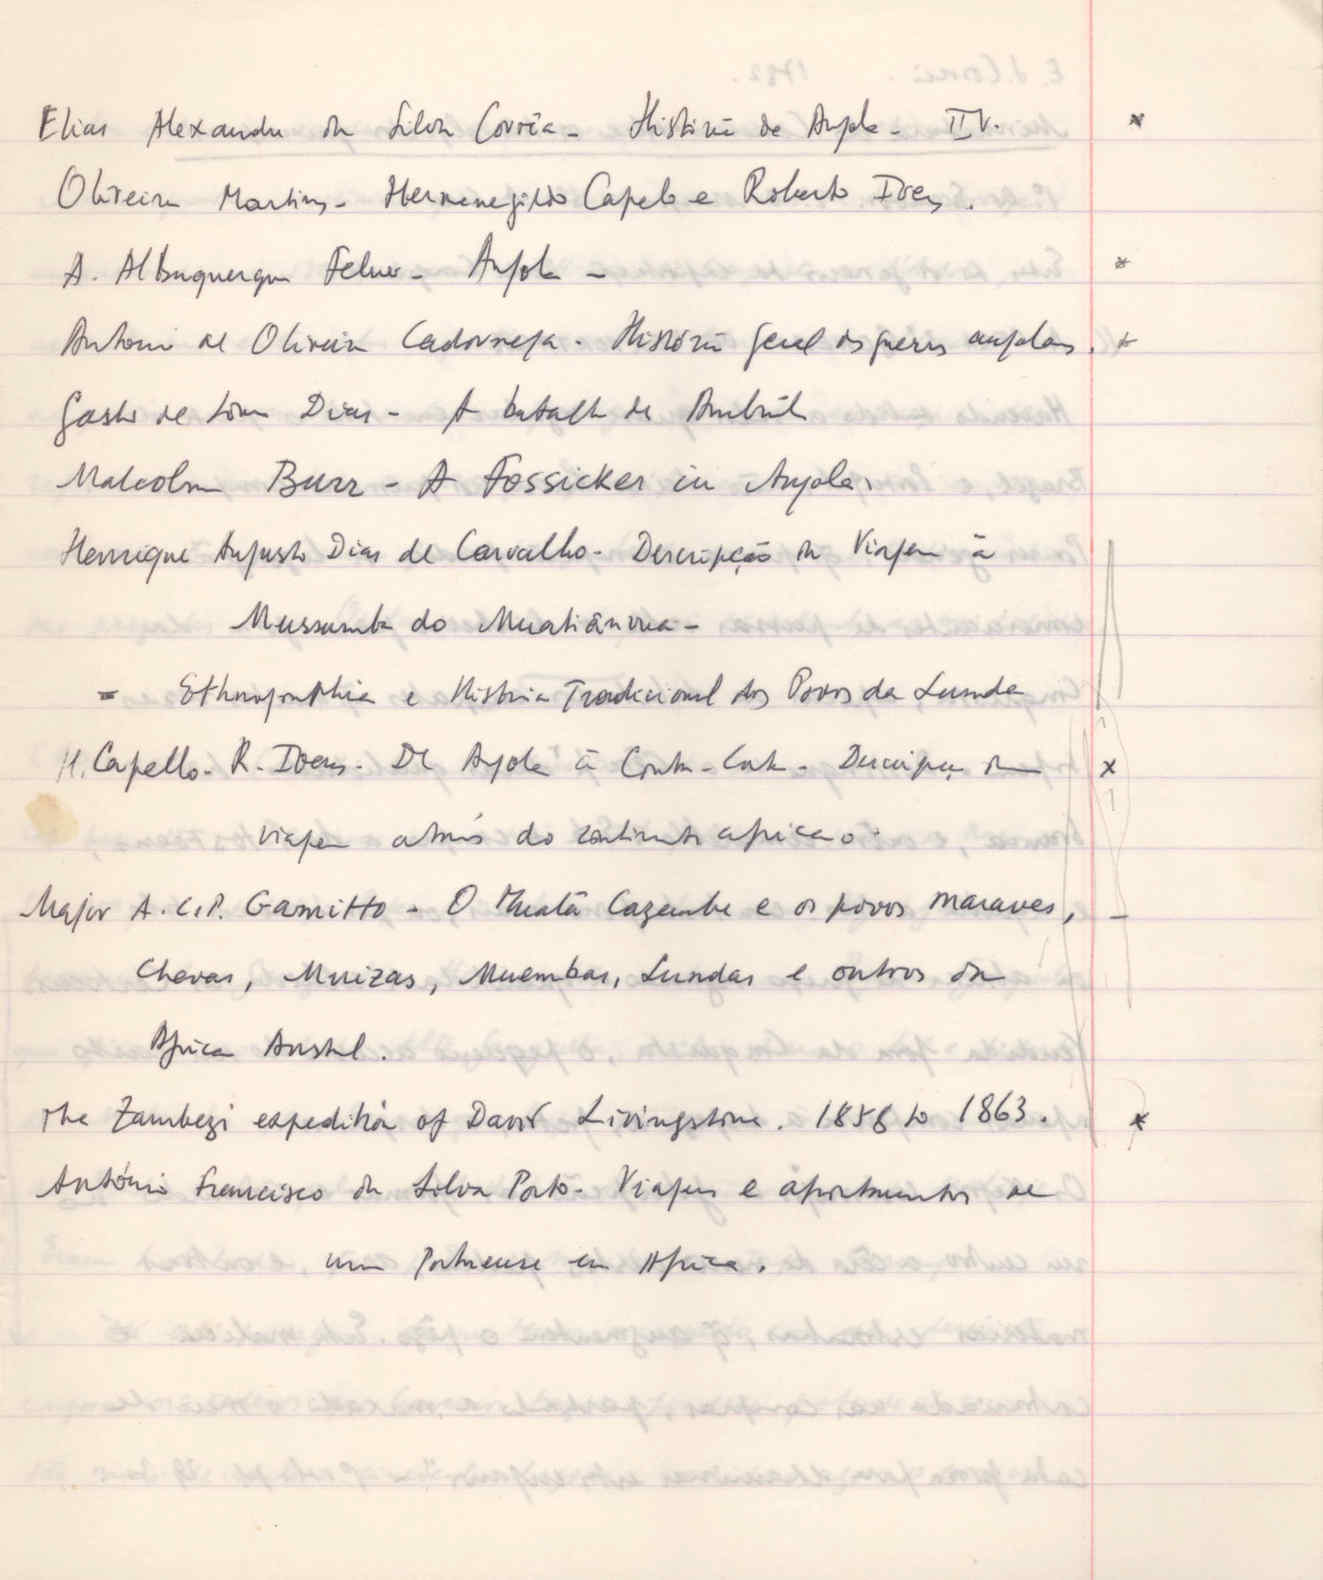 Elias Alexandre da Silva Corrêa - História de Angola - II V. *
Oliveira Martins - Hermenegildo Capelo e Roberto Ivens.
A. Albuquerque Felner - Angola - *
Antonio de Oliveira Cadornega - História geral das guerras angolanas. *
Gastão de Sousa Dias - A batalha de Ambuíla
Malcolm Burr - A Fossicker in Angola.
Henrique Augusto Dias de Carvalho - Descripção da Viagem à
Mussumba do Muatiânvua -
= Ethnographia e História Tradicional dos Povos da Lunda
H. Capello - R. Ivens - De Angola à Contra-Costa - Descripção da x
viagem através do continente africano.
Major A. C. P. Gamitto - O Muata Cazembe e os povos maraves, -
Chevas, Muizas, Muembas, Lundas e outros da
Africa Austral.
The Zambezi expedition of David Livingstone. 1858 to 1863. *
António Francisco da Silva Porto - Viagens e apontamentos de
um Portuense em Africa.